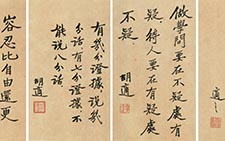 做學問要在不疑處有
疑待人要在有疑處
不疑
胡適
有幾分證據說幾
分話有七分證據不
能說八分話
胡適
容忍比自由還更
適之